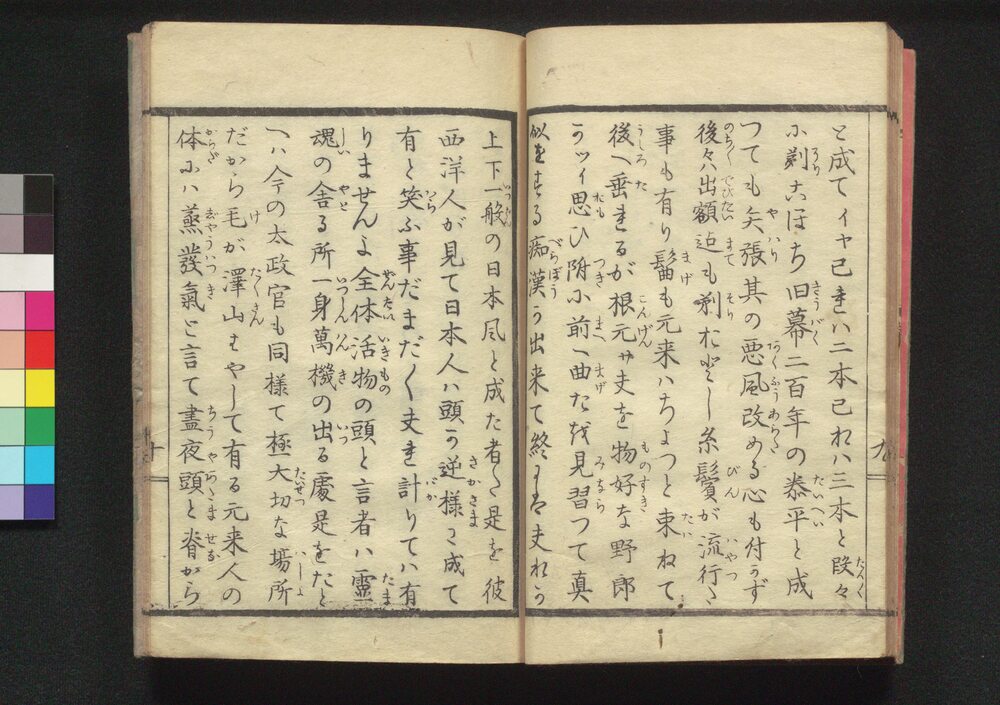 と成てイヤ己まハ二本己れハ三本と段々
小剃こほち旧幕二百年の泰平と成
つても矢張其の悪風改める心も付かず
後々ハ出額迠も剃おとし糸鬢が流行た
事も有り髷も元来ハちよつと束ねて
後へ垂まるが根元サ夫を物好な野郎
がツイ思ひ附小前へ曲たを見習つて真
似をする痴漢が出来て終には夫れが
上下一般の日本風と成た者た是を彼
西洋人が見て日本人ハ頭が逆様に成て
有と笑ふ事だまだ〱夫ま計りてハ有
りませんよ全体活物の頭と言者ハ霊
魂の舎る所一身萬機の出る處是をたと
へハ今の太政官も同様て極大切な場所
だから毛が澤山はやして有る元来人の
体にハ蒸發氣と言て晝夜頭と脊から
九
十